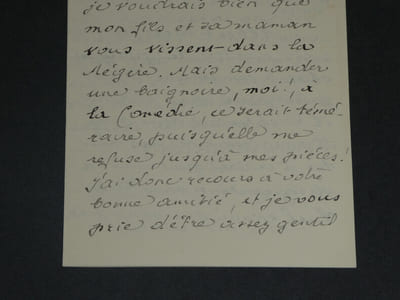 je voudrais bien que
mon fils et sa maman
vous vissent dans la
Mégère. Mais demander
une baignoire, moi!, à
la Comédie, ce serait témé-
raire, puisqu'elle me
refuse jusqu'à mes pièces!
J'ai donc recours à votre
bonne amitié, et je vous
prie d'être assez gentil